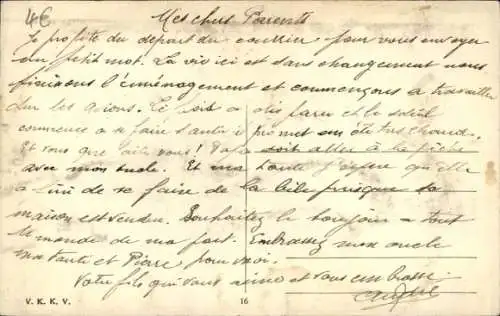 4€
Mes chers Parents
Je profite du départ du courrier pour vous envoyer
un petit mot. La vie ici est sans changement nous
finissons l'éménagement et commençons a travailler
sur les avions. Le froid a disparu et le soleil
commence a se faire sentir il promet un été très chaud.
Et vous que faite vous! Papa doit aller a la pêche
avec mon oncle. Et ma tante j'espère qu'elle
a fini de se faire de la bile puisque sa
maison est vendue. Souhaitez le bonjour a tout
le monde de ma part. Embrassez mon oncle
ma tante et Pierre pour moi.
Votre fils qui vous aime et vous embrasse
V. K. K. V. 16